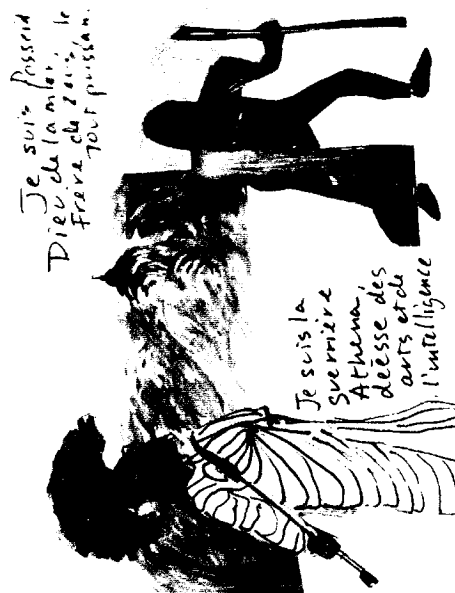 Je suis Posseid
Dieu de la mer,
Frère de Zeus, le
Tout puissan.
Je suis la
guerrière
Athena,
déesse des
arts et de
l'intelligence